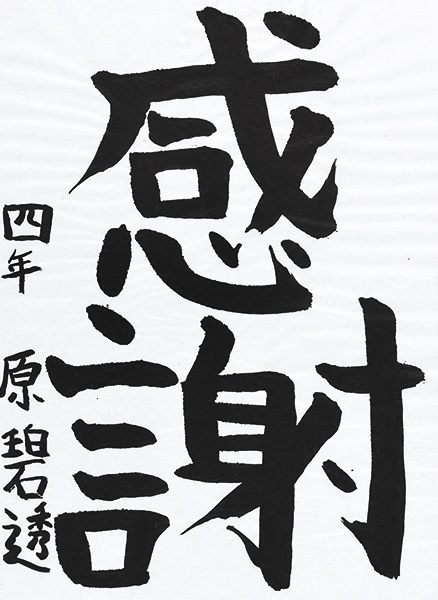 感謝
四年 原碧透